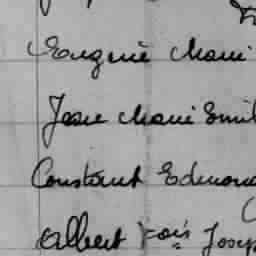 Eugénie Marie
Jean Marie Emil
Constant Edmond
Albert Fois Josep